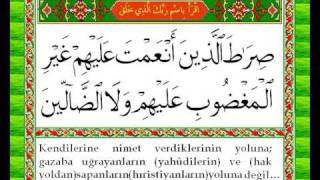 اِقْرَأْ بِاسْمِ رَبِّكَ الَّذِي خَلَقَ
صِرَٰطَ ٱلَّذِينَ أَنْعَمْتَ عَلَيْهِمْ غَيْرِ
ٱلْمَغْضُوبِ عَلَيْهِمْ وَلَا ٱلضَّآلِّينَ
Kendilerine nimet verdiklerinin yoluna;
gazaba uğrayanların (yahûdilerin) ve (hak
yoldan)sapanların(hıristiyanların)yoluna değil...